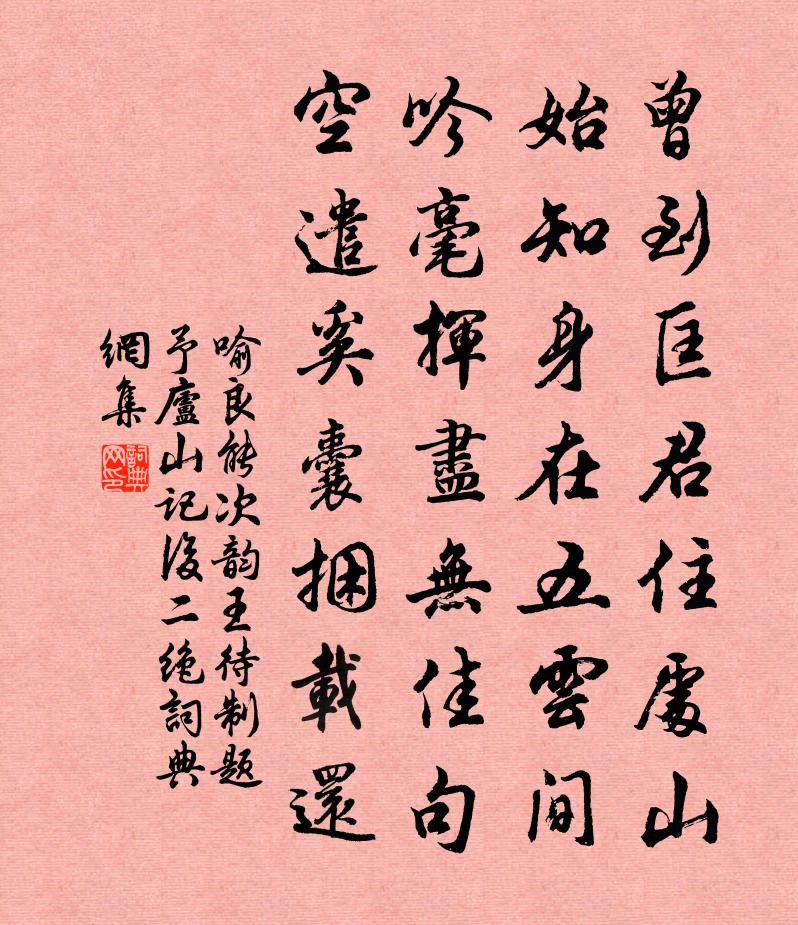 曾到匡君住處山
始知身在五雲間
吟毫揮盡無佳句
空遣奚囊捆載還
喻良能次韵王待制題
予廬山記後二絶詞典
網集
詞典网印